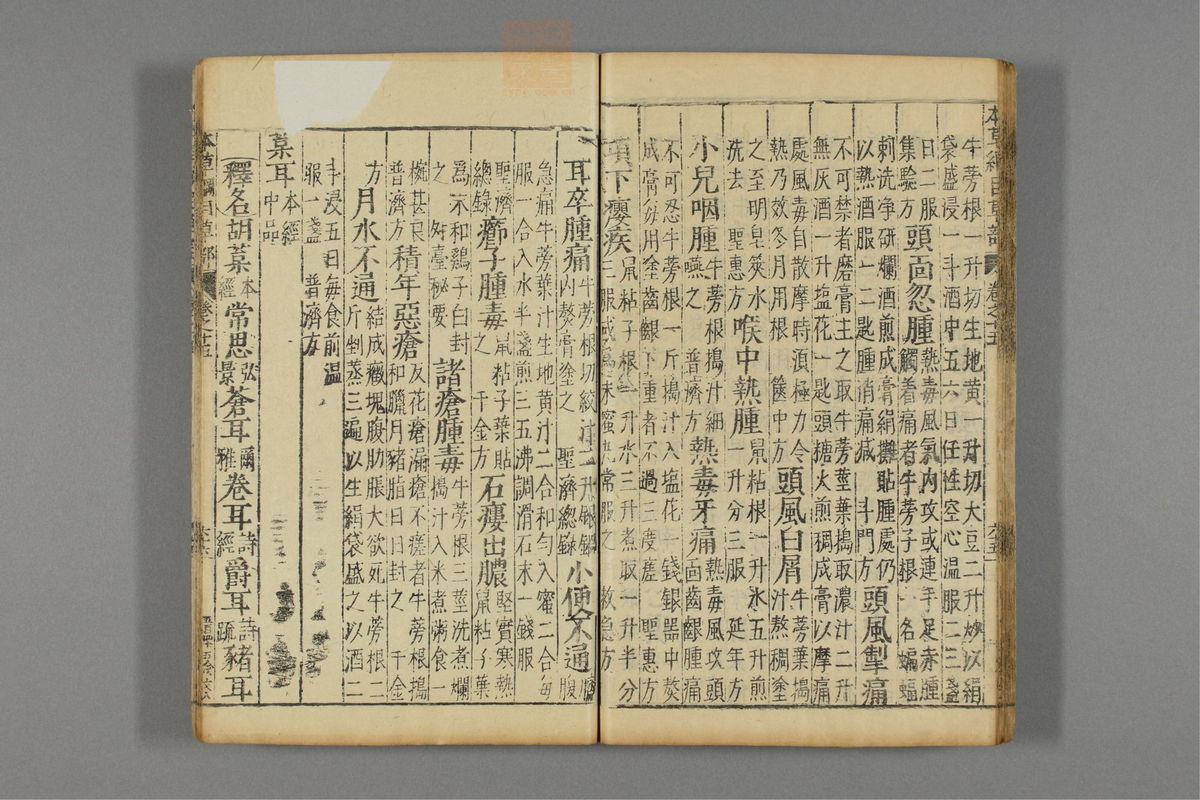 本草綱目草部 卷之十五 六十五
牛蒡根一升切生地黄一升切大豆二升炒以絹
袋盛浸一斗酒中五六日任性空心温服二三盞
日二服
集驗方 頭面忽腫 熱毒風氣内攻或連手足赤腫觸着痛者牛蒡子根一名蝙蝠
刺洗净研爛酒煎成膏絹攤貼腫處仍
以熱酒服一二匙腫消痛减 斗門方 頭風掣痛
不可禁者磨膏主之取牛蒡莖葉搗取濃汁二升
無灰酒一升塩花一匙頭搪火煎稠成膏以摩痛
處風毒自散摩時湏極力令
熱乃效冬月用根 篋中方 頭風白屑 牛蒡葉搗汁熬稠塗
之至明皂莢水
洗去 聖惠方 喉中熱腫 鼠粘根一升水五升煎一升分三服 延年方
小兒咽腫 牛蒡根搗汁細嚥之 普濟方 熱毒牙痛 熱毒風攻頭面齒齦腫痛
不可忍牛蒡根一斤搗汁入塩花一錢銀器中熬
成膏毎用塗齒齦下重者不過三度瘥 聖惠方
項下癭疾 鼠粘子根一升水三升煮取一升半分三服或爲末蜜丸常服之 救急方
耳卒腫痛 牛蒡根切絞汁二升銀鍋内熬膏塗之 聖濟總錄 小便不通 臍腹
急痛牛蒡葉汁生地黄汁二合和匀入蜜二合毎
服一合入水半盞煎三五沸調滑石末一錢服
聖濟
總錄 癤子腫毒 鼠粘子葉貼之 千金方 石瘻出膿 堅實寒熱鼠粘子葉
爲末和鷄子白封
之 外臺秘要 諸瘡腫毒 牛蒡根三莖洗煮爛搗汁入米煮粥食一
椀甚良
普濟方 積年惡瘡 反花瘡漏瘡不瘥者牛蒡根搗和臘月豬脂日封之 千金
方 月水不通 結成癥塊腹肋脹大欲死牛蒡根二斤剉蒸三遍以生絹袋盛之以酒二
斗浸五日毎食前温
服一盞 普濟方
葈耳 本經中品
釋名 胡葈 本經 常思 弘景 蒼耳 爾雅 卷耳 詩經 爵耳 詩疏 豬耳
本草綱目草部 卷之十五 六十六